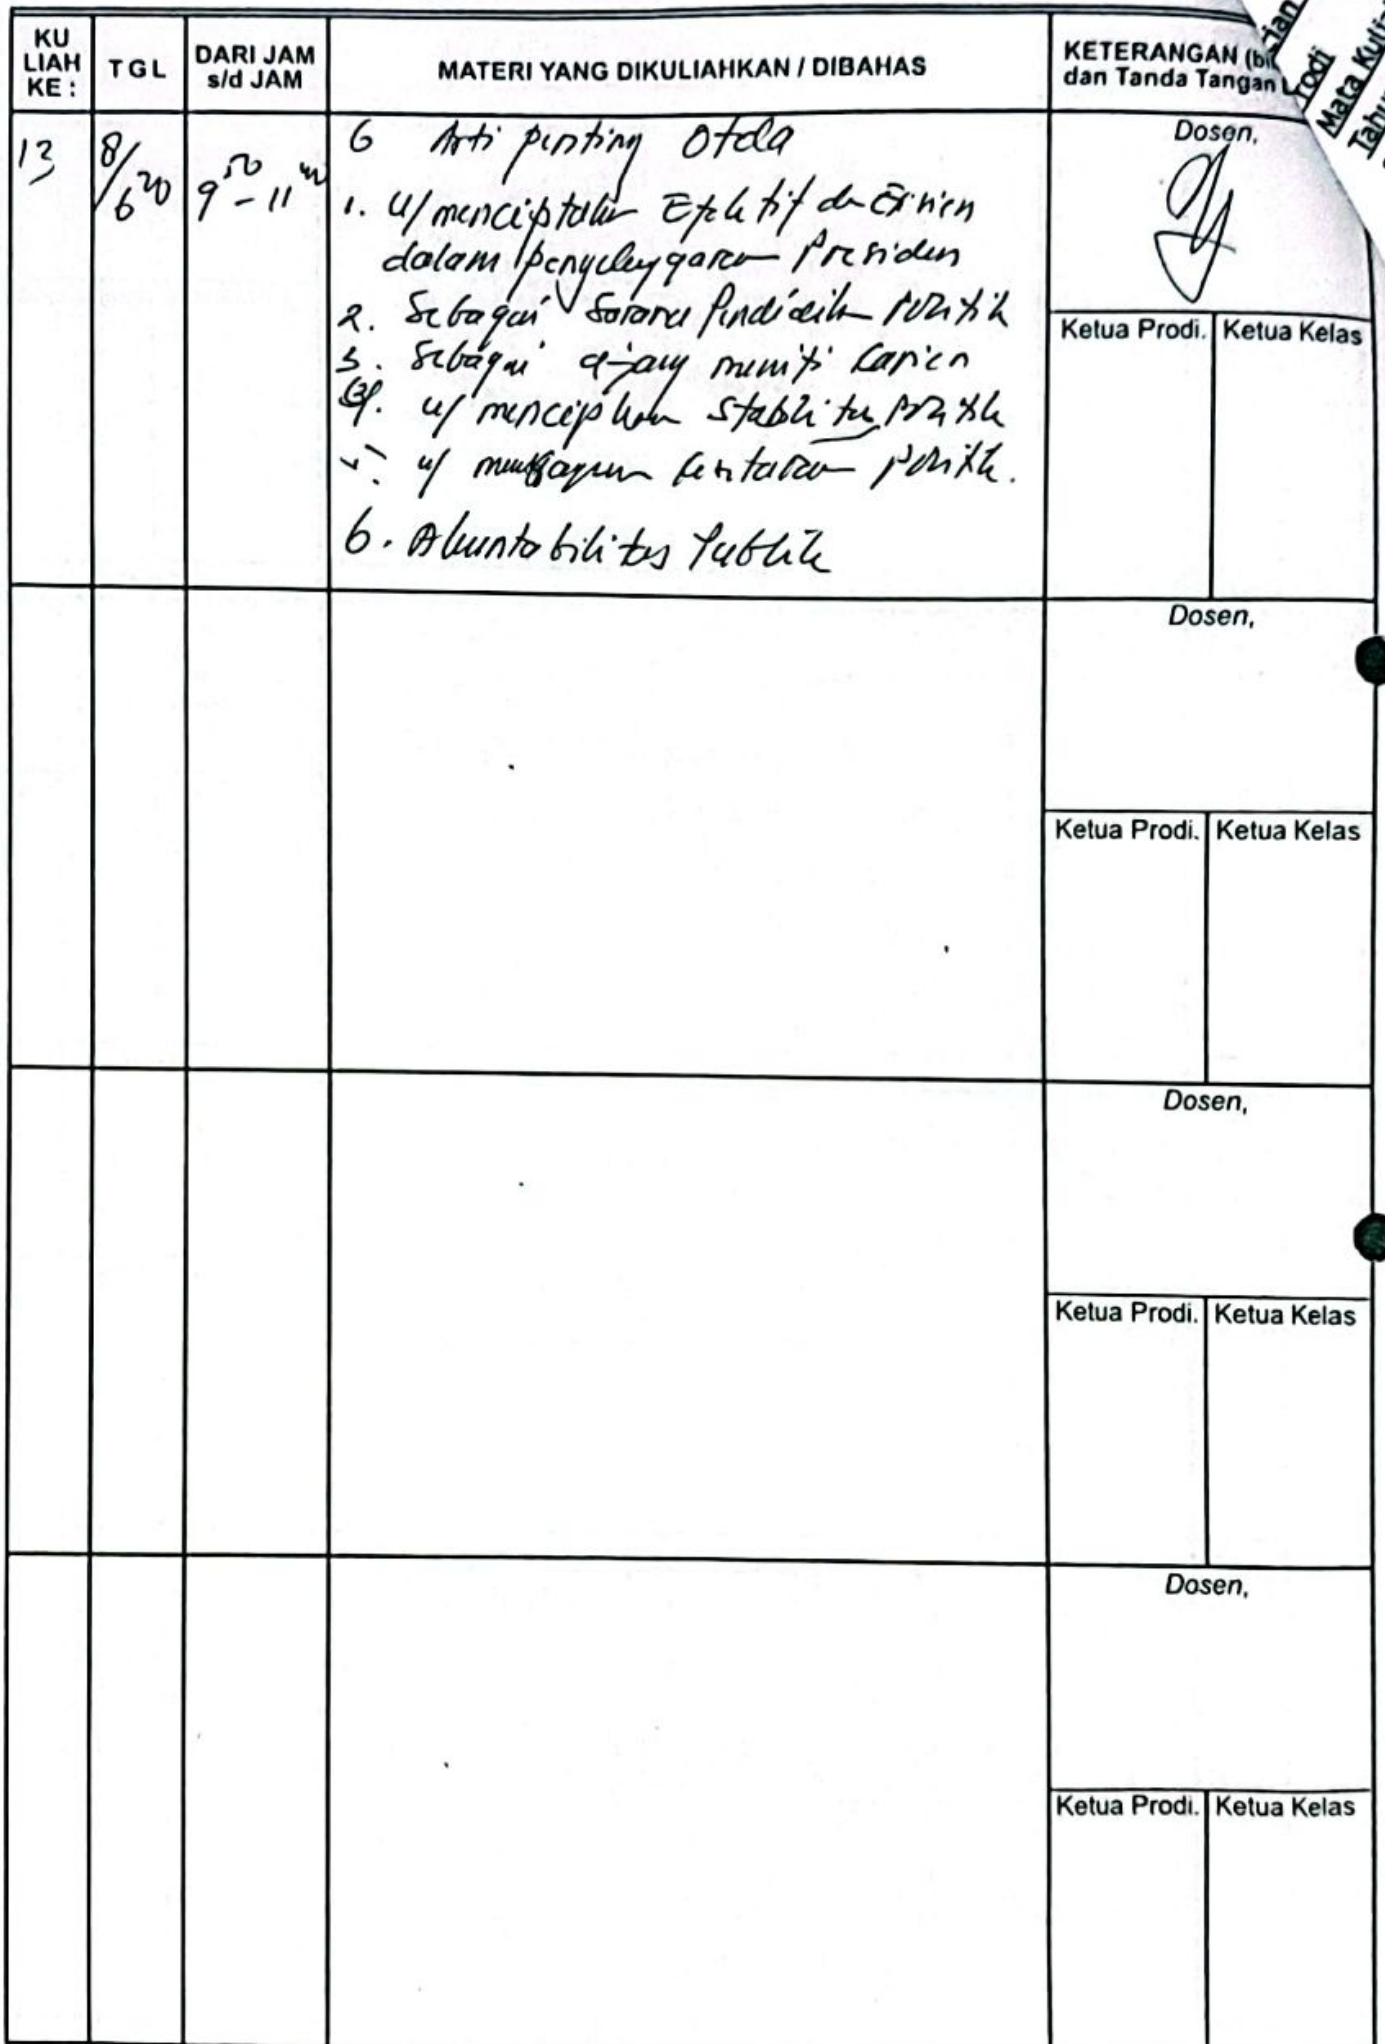 KU LIAH KE :
TGL
DARI JAM s/d JAM
MATERI YANG DIKULIAHKAN / DIBAHAS
KETERANGAN (bi
dan Tanda Tangan
Prodi
Mata Kuli
Tahu
13
8/6 20
9 50 - 11
6 Arti penting Otda
1. u/ menciptakan Efektif dan Efisien
dalam penyelenggaraan Presiden
2. Sebagai Sarana Pendidikan Politik
3. Sebagai ajang meniti karier
4. u/ menciptakan stabilitas Politik
5. u/ kesetaraan politik.
6. Akuntabilitas Publik
Dosen,
Ketua Prodi. Ketua Kelas
Dosen,
Ketua Prodi. Ketua Kelas
Dosen,
Ketua Prodi. Ketua Kelas
Dosen,
Ketua Prodi. Ketua Kelas